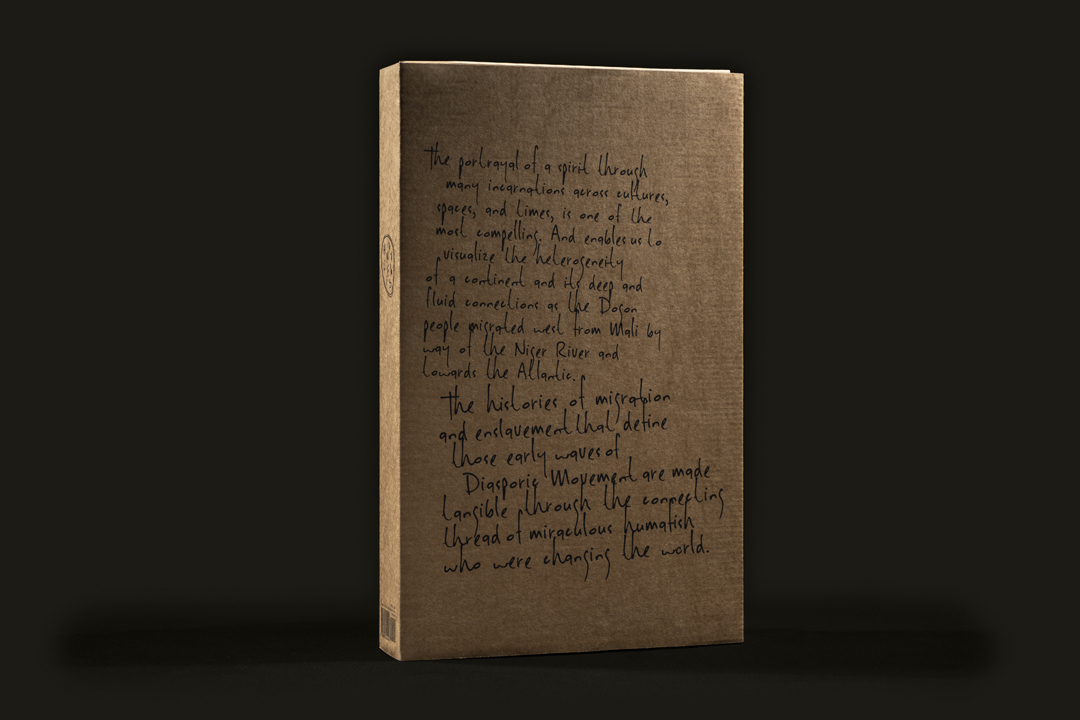 The portrayal of a spirit through
many incarnations across cultures,
spaces, and times, is one of the
most compelling. And enables us to
visualize the heterogeneity
of a continent and its deep and
fluid connections as the Dogon
people migrated west from Mali by
way of the Niger River and
towards the Atlantic.
The histories of migration
and enslavement that define
those early waves of
Diasporic Movement are made
tangible through the connecting
thread of miraculous humatish
who were changing the world.